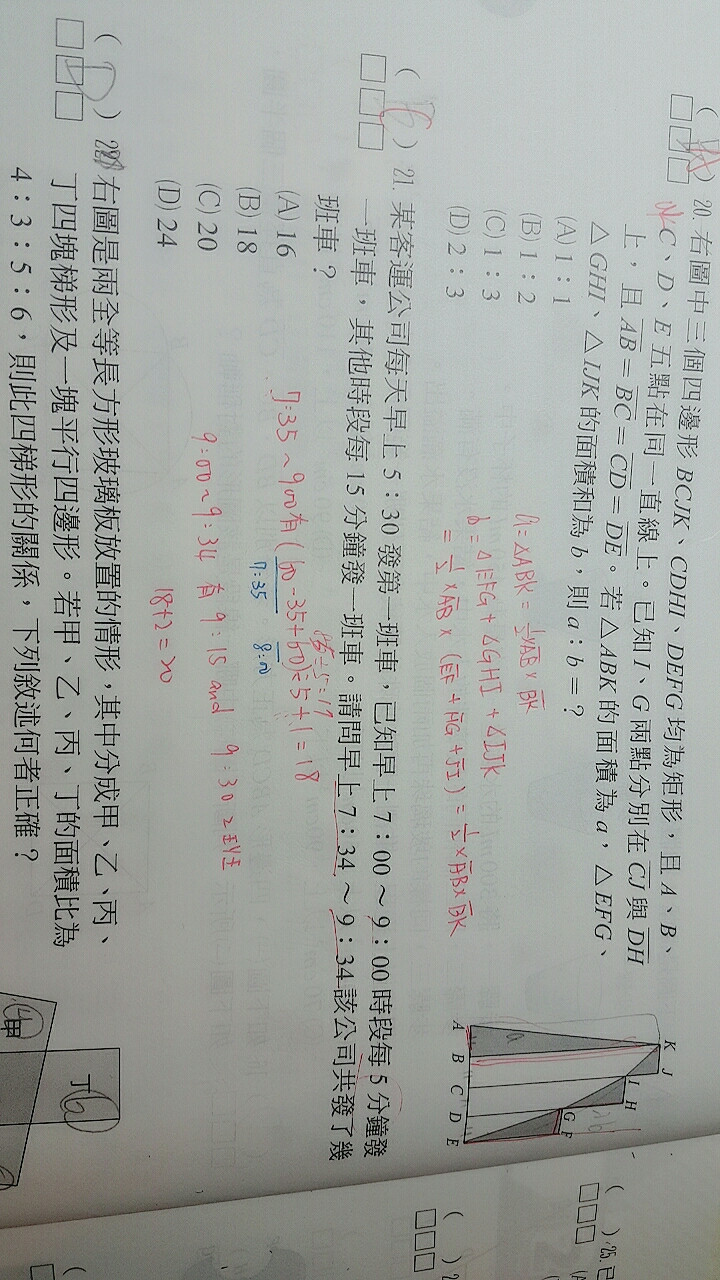 ( ) 20. 右圖中三個四邊形 BCJK、CDHI、DEFG 均為矩形，且 A、B、
C、D、E 五點在同一直線上。已知 I、G 兩點分別在 CJ 與 DH
上，且 AB = BC = CD = DE。若 △ABK 的面積為 a，△EFG、
△GHI、△IJK 的面積和為 b，則 a：b = ？
(A) 1：1
(B) 1：2
(C) 1：3
(D) 2：3
a = △ABK = 1/2 × AB × BK
b = △EFG + △GHI + △IJK
= 1/2 × AB × (EF + HG + JI) = 1/2 × AB × BK
K
J
I
H
G
F
A
B
C
D
E
a
b
( ) 21. 某客運公司每天早上 5：30 發第一班車，已知早上 7：00～9：00 時段每 5 分鐘發
一班車，其他時段每 15 分鐘發一班車。請問早上 7：34～9：34 該公司共發了幾
班車？
(A) 16
(B) 18
(C) 20
(D) 24
85÷5=17
7:35～9:00有(60-35+60)÷5+1=18
7:35
8:00
9:00～9:34 有 9:15 and 9:30 2班
18+2=20
( D ) 22. 右圖是兩全等長方形玻璃板放置的情形，其中分成甲、乙、丙、
丁四塊梯形及一塊平行四邊形。若甲、乙、丙、丁的面積比為
4：3：5：6，則此四梯形的關係，下列敘述何者正確？
4
甲
丁
6
( )
25. 已
( ) 2
(